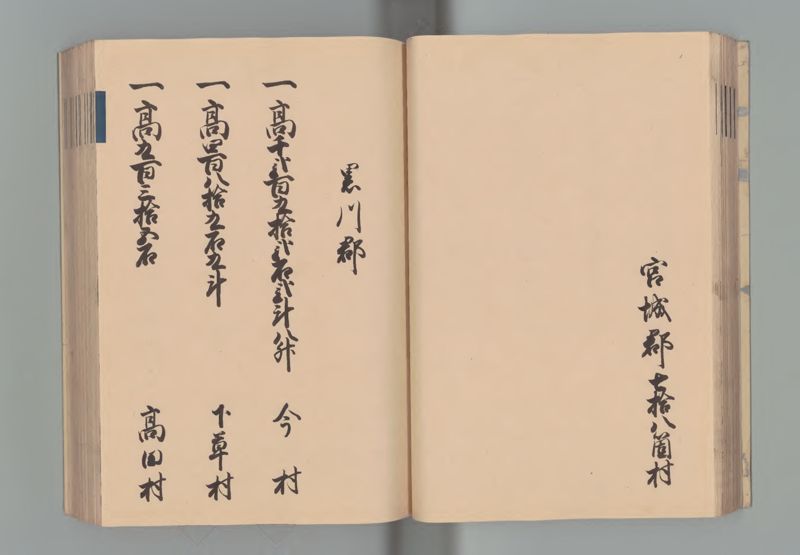 宮城郡七拾八箇村
黒川郡
一高千弐百九拾弐石弐斗八升 今村
一高四百八拾九石九斗 下草村
一高九百三拾五石 高田村